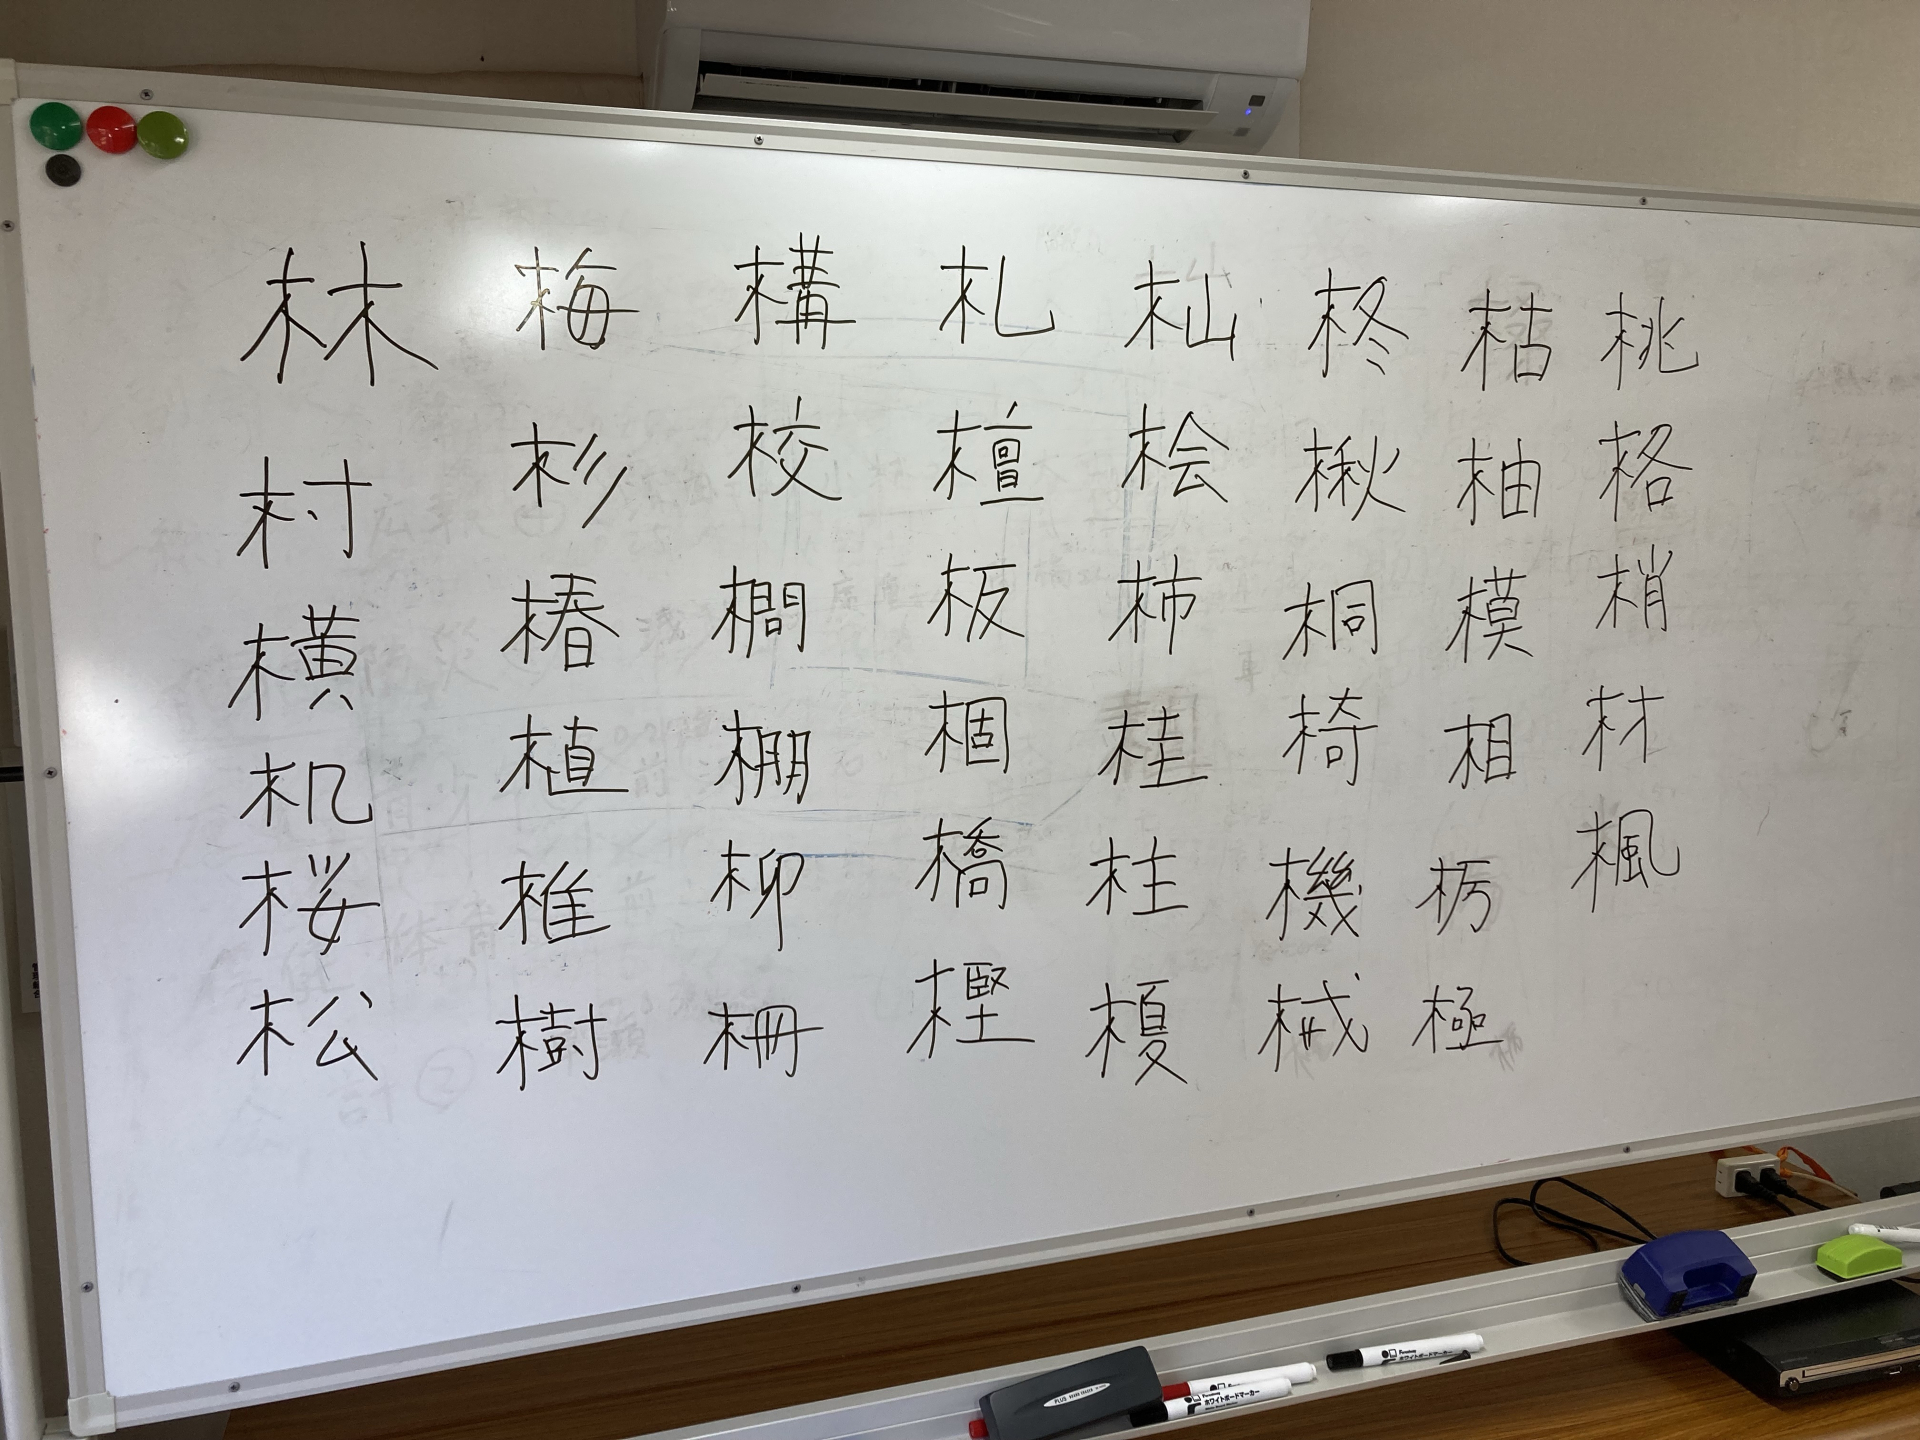 林村横机桜松
梅杉椿植椎樹
構校橺棚柳柵
札檀板棝橋樫
杣桧柿桂柱榎
柊楸桐椅機械
枯柚模相栃極
桃格梢材楓
PLUS
ホワイトボードマーカー
ホワイトボードマーカー